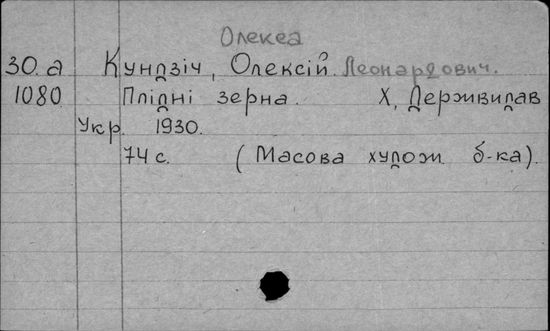 Олекса
30. а Кундзіч, Олексій Леонардович.
1080 Плідні зерна. Х, Держвидав
Укр. 1930.
74 с. (Масова худож. б-ка).